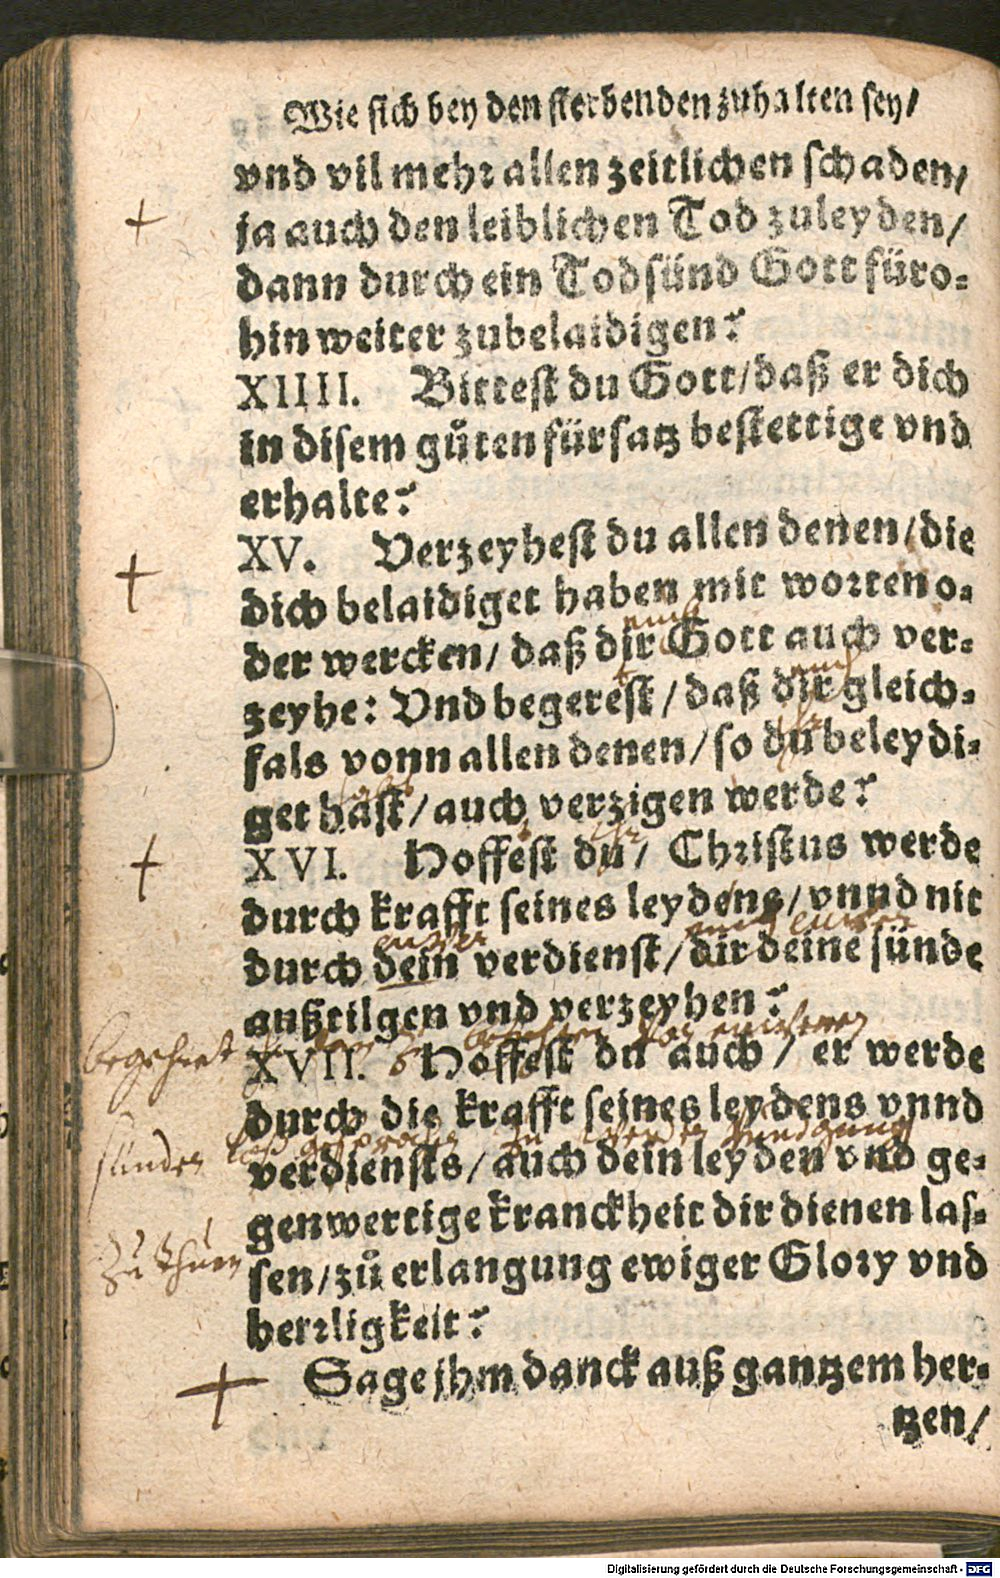 Wie sich bey den sterbenden zuhalten sey/
vnd vil mehr allen zeitlichen schaden/
ja auch den leiblichen Tod zuleyden/
dann durch ein Todsünd Gott füro-
hin weiter zubelaidigen?
XIIII. Bittest du Gott/daß er dich
in disem gůten fürsatz bestettige vnd
erhalte?
XV. Verzeyhest du allen denen/die
dich belaidiget haben mit worten o-
euch
der wercken/ daß dir Gott auch ver-
euch
zeyhe: Vnd begerest/daß dir gleich-
ihr
fals vonn allen denen/so du beleydi-
habt
get hast/auch verzigen werde?
ihr
XVI. Hoffest du/ Christus werde
durch krafft seines leydens/vnnd nit
euwer euch euwere
durch dein verdienst/dir deine sünde
außtilgen vnd verzeyhen?
begehret
XVII. Hoffest du auch/ er werde
durch die krafft seines leydens vnnd
sünden zu werden
verdiensts/auch dein leyden vnd ge-
genwertige kranckheit dir dienen las-
zu thuen
sen/zů erlangung ewiger Glory vnd
herrligkeit?
Sage jhm danck auß gantzem her-
tzen/
Digitalisierung gefördert durch die Deutsche Forschungsgemeinschaft - DFG